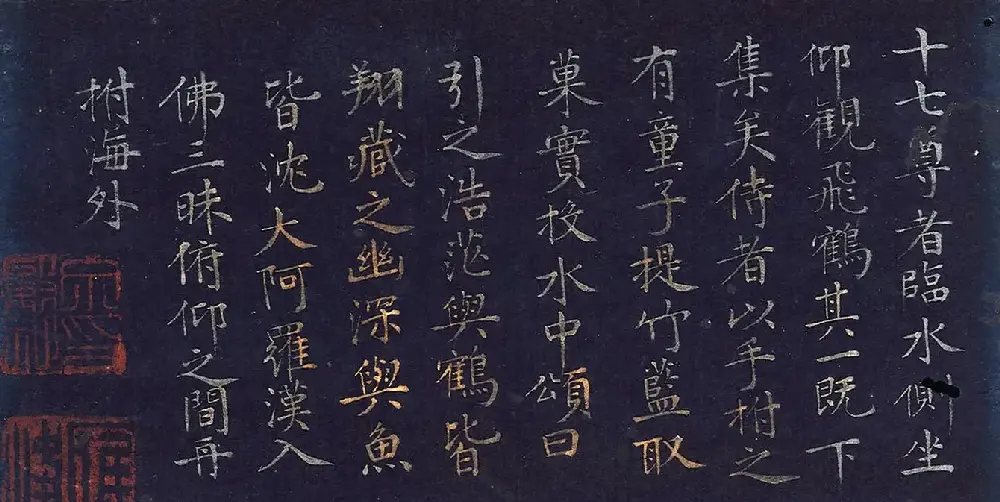 十七尊者臨水側坐
仰觀飛鶴其一既下
集矣侍者以手拊之
有童子提竹藍取
菓實投水中頌曰
引之浩茫與鶴皆
翔藏之幽深與魚
皆沈大阿羅漢入
佛三昧俯仰之間再
拊海外